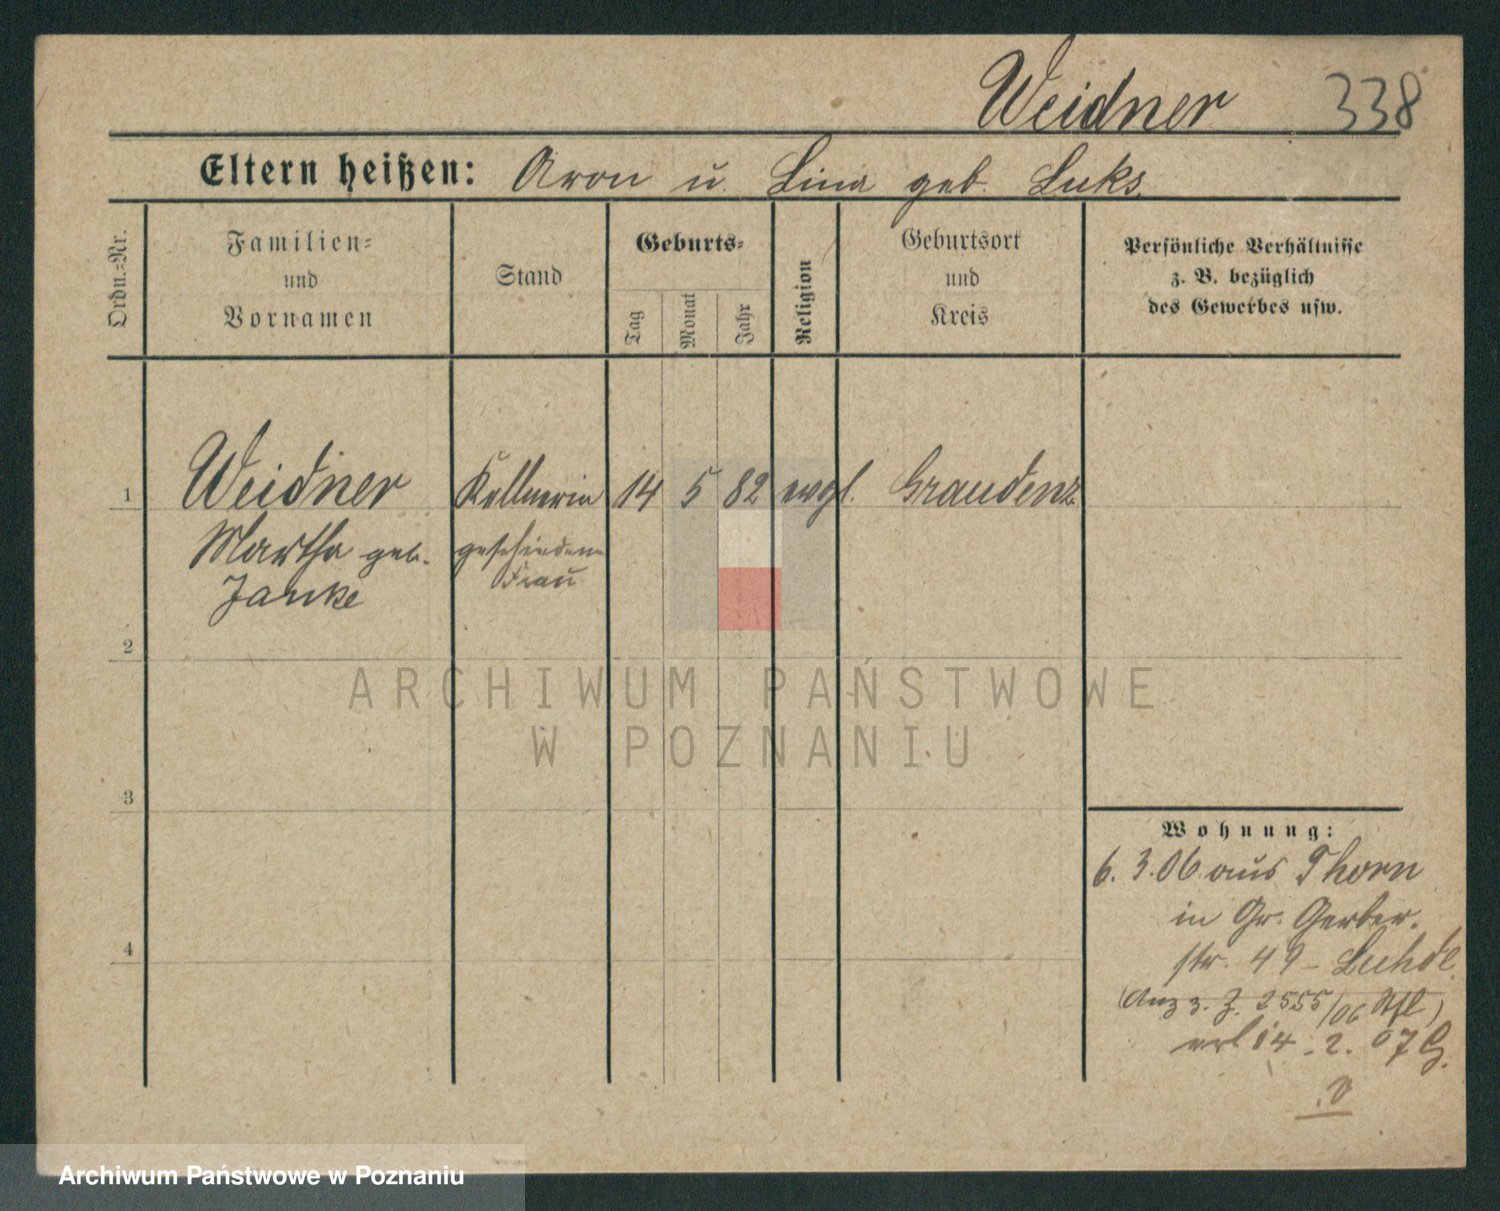 Weidner 338
Eltern heißen: Aron u. Lina geb. Luks.
Ordn.=Nr.
Familien=
und
Vornamen
Stand
Geburts=
Tag
Monat
Jahr
Religion
Geburtsort
und
Kreis
Persönliche Verhältnisse
z. B. bezüglich
des Gewerbes usw.
1 Weidner Kellnerin 14 5 82 evgl. Graudenz
Martha geb. geschiedene
Janke Frau
2
ARCHIWUM PAŃSTWOWE
W POZNANIU
3
Wohnung:
6. 3. 06 aus Thorn
in Gr. Gerber.
str. 49 -
4
(Anz z. Z. 2555/06
14. 2. 07
Archiwum Państwowe w Poznaniu